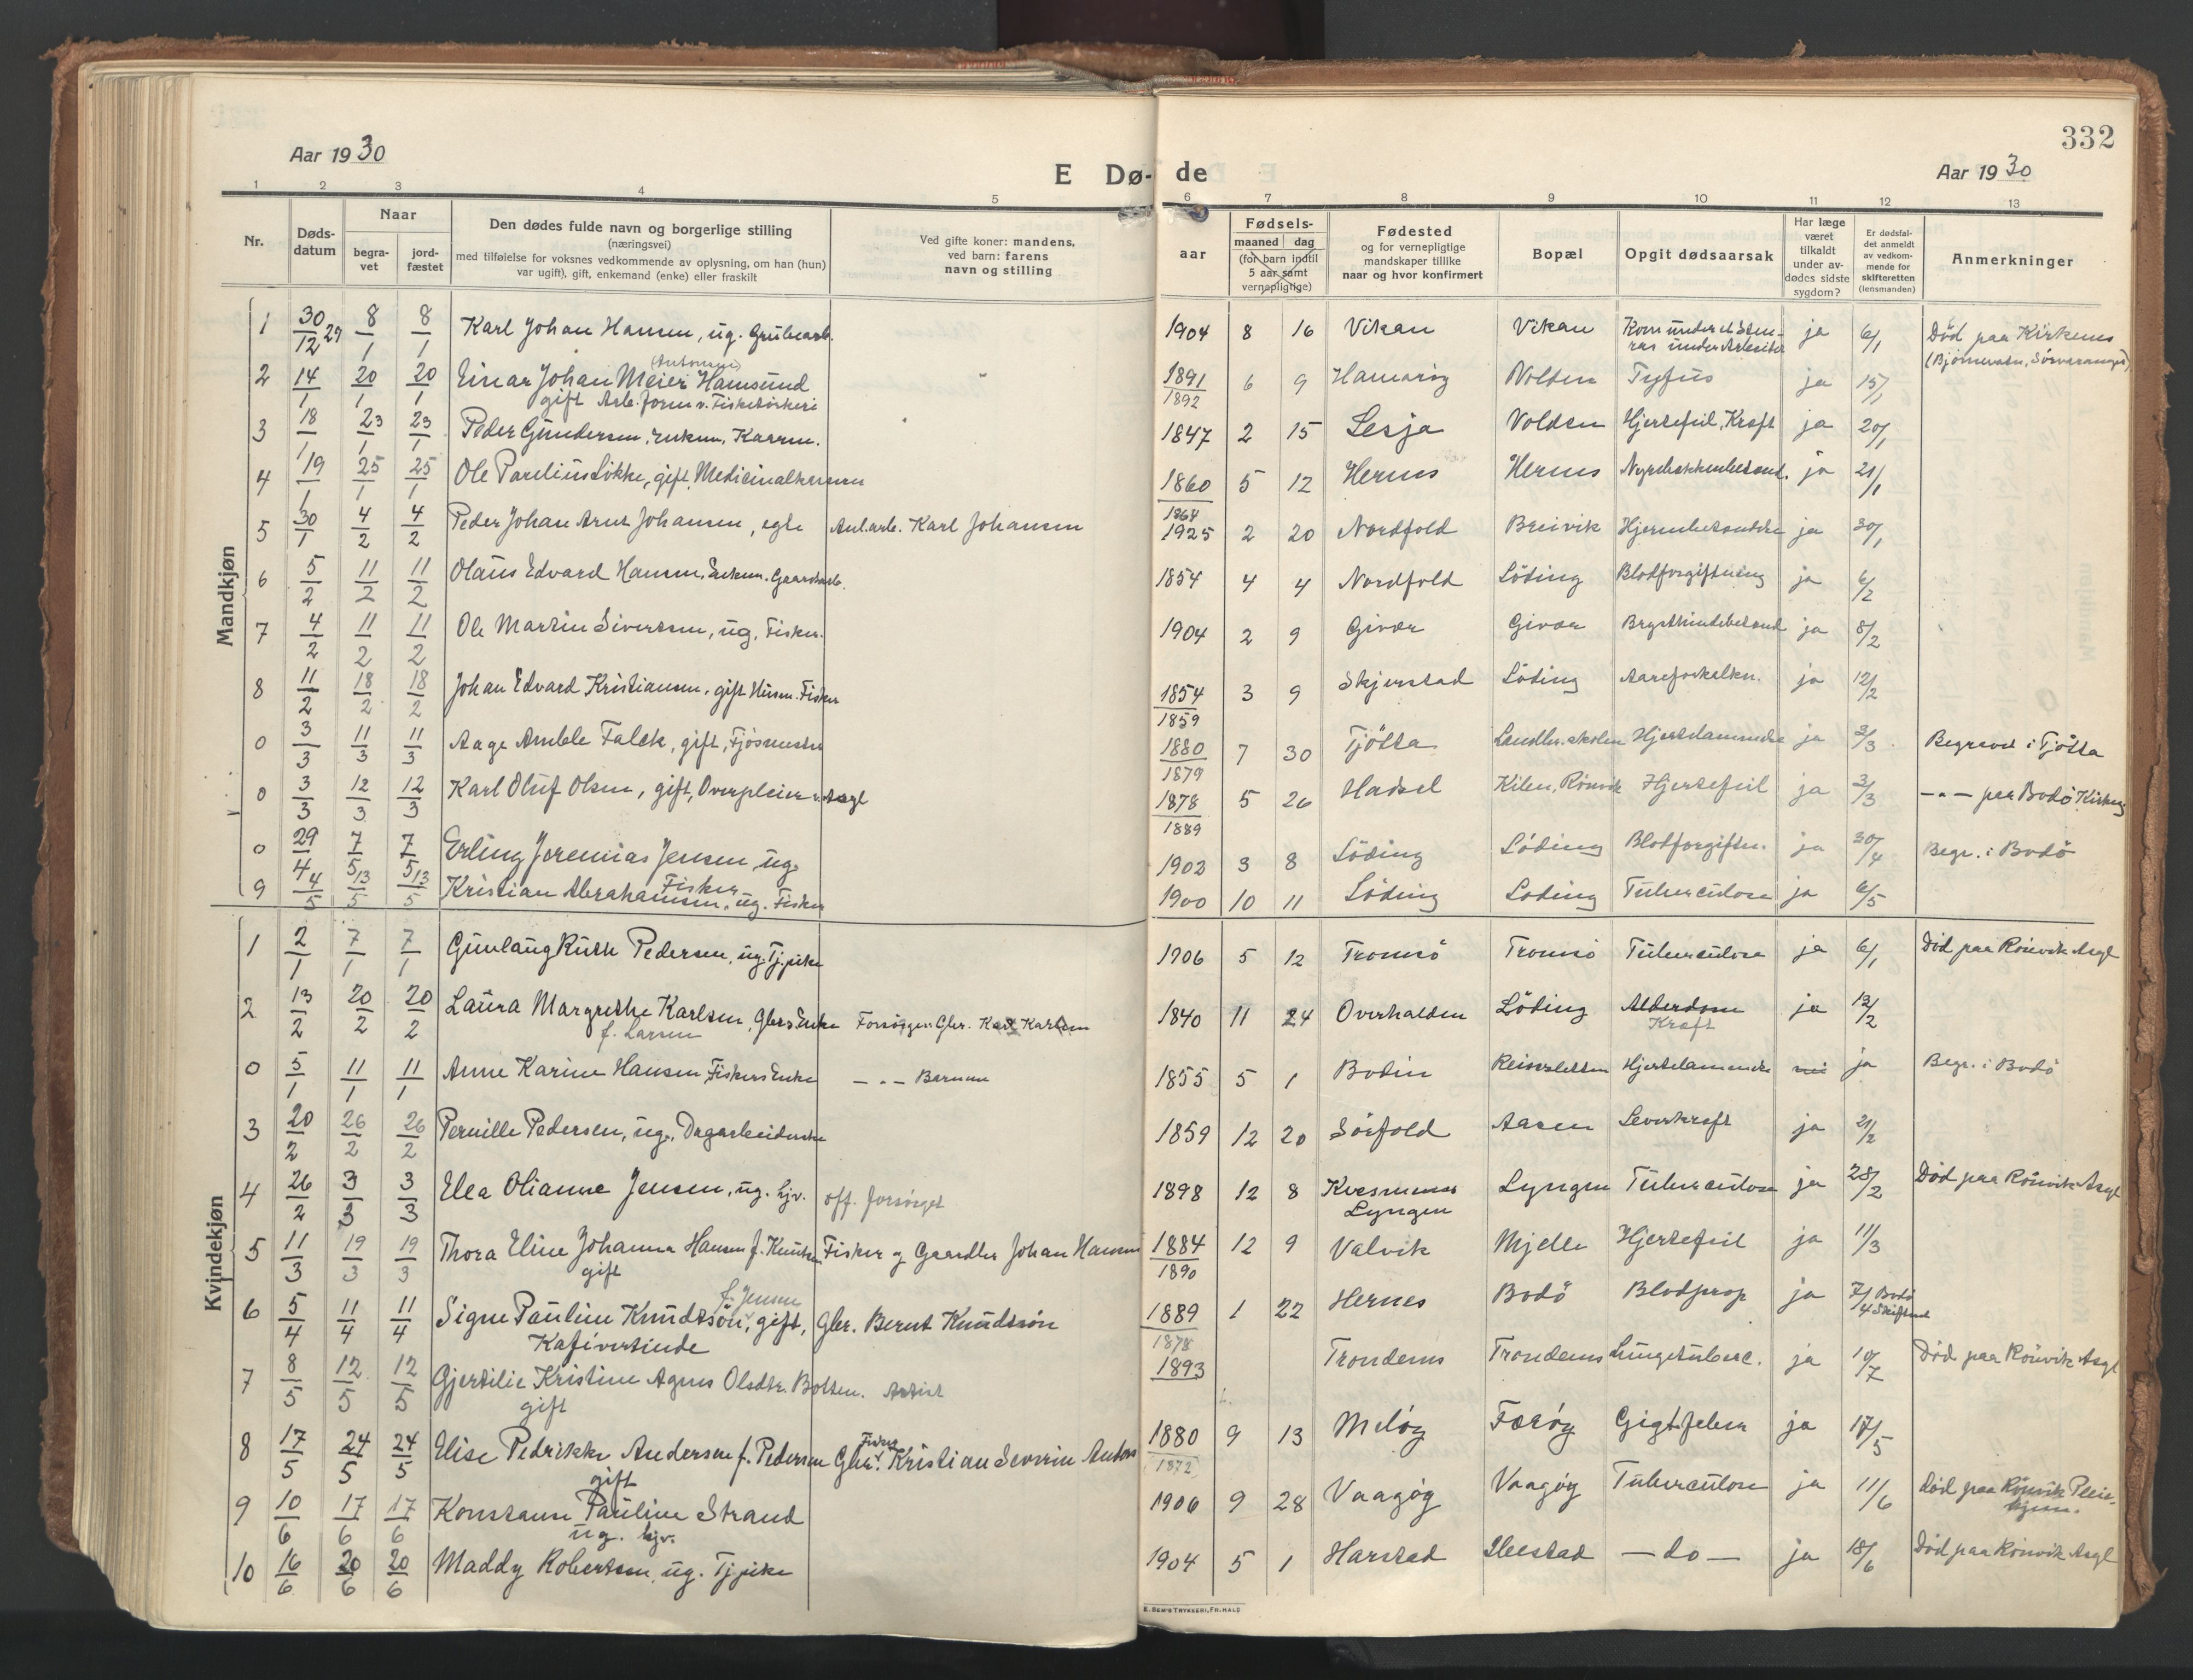 332
Aar 1930
E Dø- de
Aar 1930
1 2 3 4 5 6 7 8 9 10 11 12 13
Nr.
Døds-
datum
Naar
begra-
vet
jord-
fæstet
Den dødes fulde navn og borgerlige stilling
(næringsvei)
med tilføielse for voksnes vedkommende av oplysning, om han (hun)
var ugift), gift, enkemand (enke) eller fraskilt
Ved gifte koner: mandens,
ved barn: farens
navn og stilling
aar
Fødsels-
maaned dag
(for barn indtil
5 aar samt
vernepligtige)
Fødested
og for vernepligtige
mandskaper tillike
naar og hvor konfirmert
Bopæl
Opgit dødsaarsak
Har læge
været
tilkaldt
under av-
dødes sidste
sygdom?
Er dødsfal-
det anmeldt
av vedkom-
mende for
skifteretten
(lensmanden)
Anmerkninger
Mandkjøn
1 30/12 29 8/1 8/1 Karl Johan Hansen, ug. Grubearb. 1904 8 16 Vikan Vikan Kom under et Sten- ja 6/1 Död paa Kirkenes
ras under Arbeide (Bjørnevatn, Sörvaranger)
(Antonsen)
2 14/1 20/1 20/1 Einar Johan Meier Hamsund 1891 6 9 Hamaröy Volden Tyfus ja 15/1
gift Arb.form. v. Fisketörkeri 1892
3 18/1 23/1 23/1 Peder Gundersen, Enkem. Kaarm. 1847 2 15 Lesja Volden Hjertefeil, Kræft ja 20/1
4 19/1 25/1 25/1 Ole Parelius Løkke, gift, 1860 5 12 Hernes Hernes ja 21/1
1868
5 30/1 4/2 4/2 Peder Johan Arnt Johansen, egte Anl.arb. Karl Johansen 1925 2 20 Nordfold Breivik Hjernebetændelse ja 30/1
6 5/2 11/2 11/2 Olaus Edvard Hansen, Enkem. Gaardarb. 1854 4 4 Nordfold Löding Blodforgiftning ja 6/2
7 4/2 11/2 11/2 Ole Martin Sivertsen, ug. Fisker. 1904 2 9 Givær Givær Brysthindebetænd ja 8/2
8 11/2 18/2 18/2 Johan Edvard Kristiansen, gift Husm. Fisker 1854 3 9 Skjerstad Löding Aareforkalkn. ja 12/2
1859
0 3/3 11/3 11/3 Aage Amble Falck, gift, Fjösmester 1880 7 30 Tjötta Landbr.skolen Hjertelammelse ja 3/3 Begravet i Tjötta
1879
0 3/3 12/3 12/3 Karl Oluf Olsen, gift, Overpleier v. Asyl 1878 5 26 Hadsel Kilen, Rönvik Hjertefeil ja 3/3 — " — paa Bodö Kirkeg
1889
0 29/4 7/5 7/5 Erling Jeremias Jensen, ug. 1902 3 8 Löding Löding Blodforgiftn. ja 30/4 Begr. i Bodö
Fisker
9 4/5 13/5 13/5 Kristian Abrahamsen, ug. Fisker 1900 10 11 Löding Löding Tuberculose ja 6/5
Kvindekjøn
1 2/1 7/1 7/1 Gunlaug Ruth Pedersen, ug. Tj.pike 1906 5 12 Tromsö Tromsö Tuberculose ja 6/1 Död paa Rönvik Asyl
2 13/2 20/2 20/2 Laura Margrethe Karlsen, Gbrs Enke Gbr. Karl Karlsen 1840 11 24 Overhalden Löding Alderdom ja 13/2
f. Larsen Kræft
0 5/1 11/1 11/1 Anne Karine Hansen, Fiskers Enke — " — Barnum 1855 5 1 Bodin Hjertelammelse nei ja Begr. i Bodö
3 20/2 26/2 26/2 Pernille Pedersen, ug., Dagarbeiderske 1859 12 20 Sörfold Aasen Leverkræft ja 21/2
4 26/2 3/3 3/3 Elea Olianne Jensen, ug. hjv. off. forsörget 1898 12 8 Kvesmenes Lyngen Tuberculose ja 28/2 Död paa Rönvik Asyl
Lyngen
5 11/3 19/3 19/3 Thora Eline Johanna Hansen f. Knutsen Fisker og Gaardbr Johan Hansen 1884 12 9 Valvik Mjelle Hjertefeil ja 11/3
gift 1890
f. Jensen
6 5/4 11/4 11/4 Signe Pauline Knudtsön, gift, Gbr. Bernt Knudtsön 1889 1 22 Hernes Bodö Blodprop ja 7/4 Bodö Skifteret
Kaféværtinde 1878
7 8/5 12/5 12/5 Gjertilie Kristine Agnes Olsdtr. Bolten. Artist 1893 Trondenes Trondenes Lungetuberc. ja 10/7 Död paa Rönvik Asyl
gift
Fisker
8 17/5 24/5 24/5 Elise Pedrikke Andersen f. Pedersen Gbr. Kristian Severin Anders 1880 9 13 Melöy Færöy Gigtfeber ja 17/5
gift 1872
9 10/6 17/6 17/6 Konstanse Pauline Strand 1906 9 28 Vaagöy Vaagöy Tuberculose ja 11/6 Död paa Rönvik Pleie-
ug. hjv. hjem.
10 16/6 20/6 20/6 Maddy Robertsen, ug. Tj.pike 1904 5 1 Harstad — do — ja 18/6 Död paa Rönvik Asyl
E. SEM'S TRYKKERI, FR.HALD